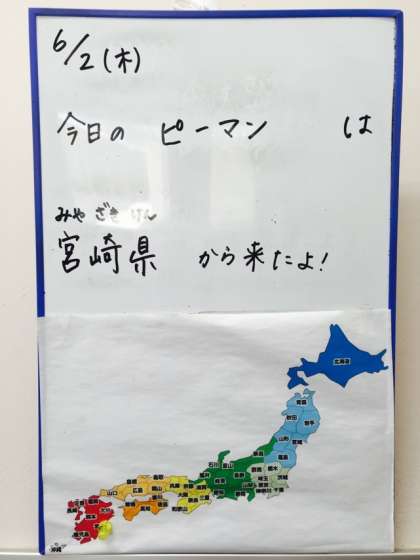 6/2(木)
今日の ピーマン は
みや ざき けん
宮崎県 から来たよ!
北海道
青森
秋田 岩手
山形 宮城
福島
新潟
石川 富山
群馬 栃木
茨城
埼玉
神奈川 千葉
長野
岐阜
静岡
福井
京都
滋賀
兵庫
大阪
和歌山
鳥取
岡山
島根
広島
山口
愛媛
高知
福岡
大分
熊本
鹿児島
沖縄